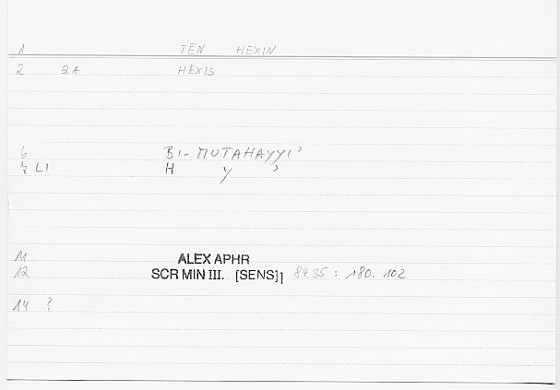 1 TËN HEXIN
2 QA HEXIS
6 BI-MUTAHAYYI'
7 LI H Y '
11 ALEX APHR
12 SCR MIN III. [SENS]] 84.35 : 180. 102
14 ?